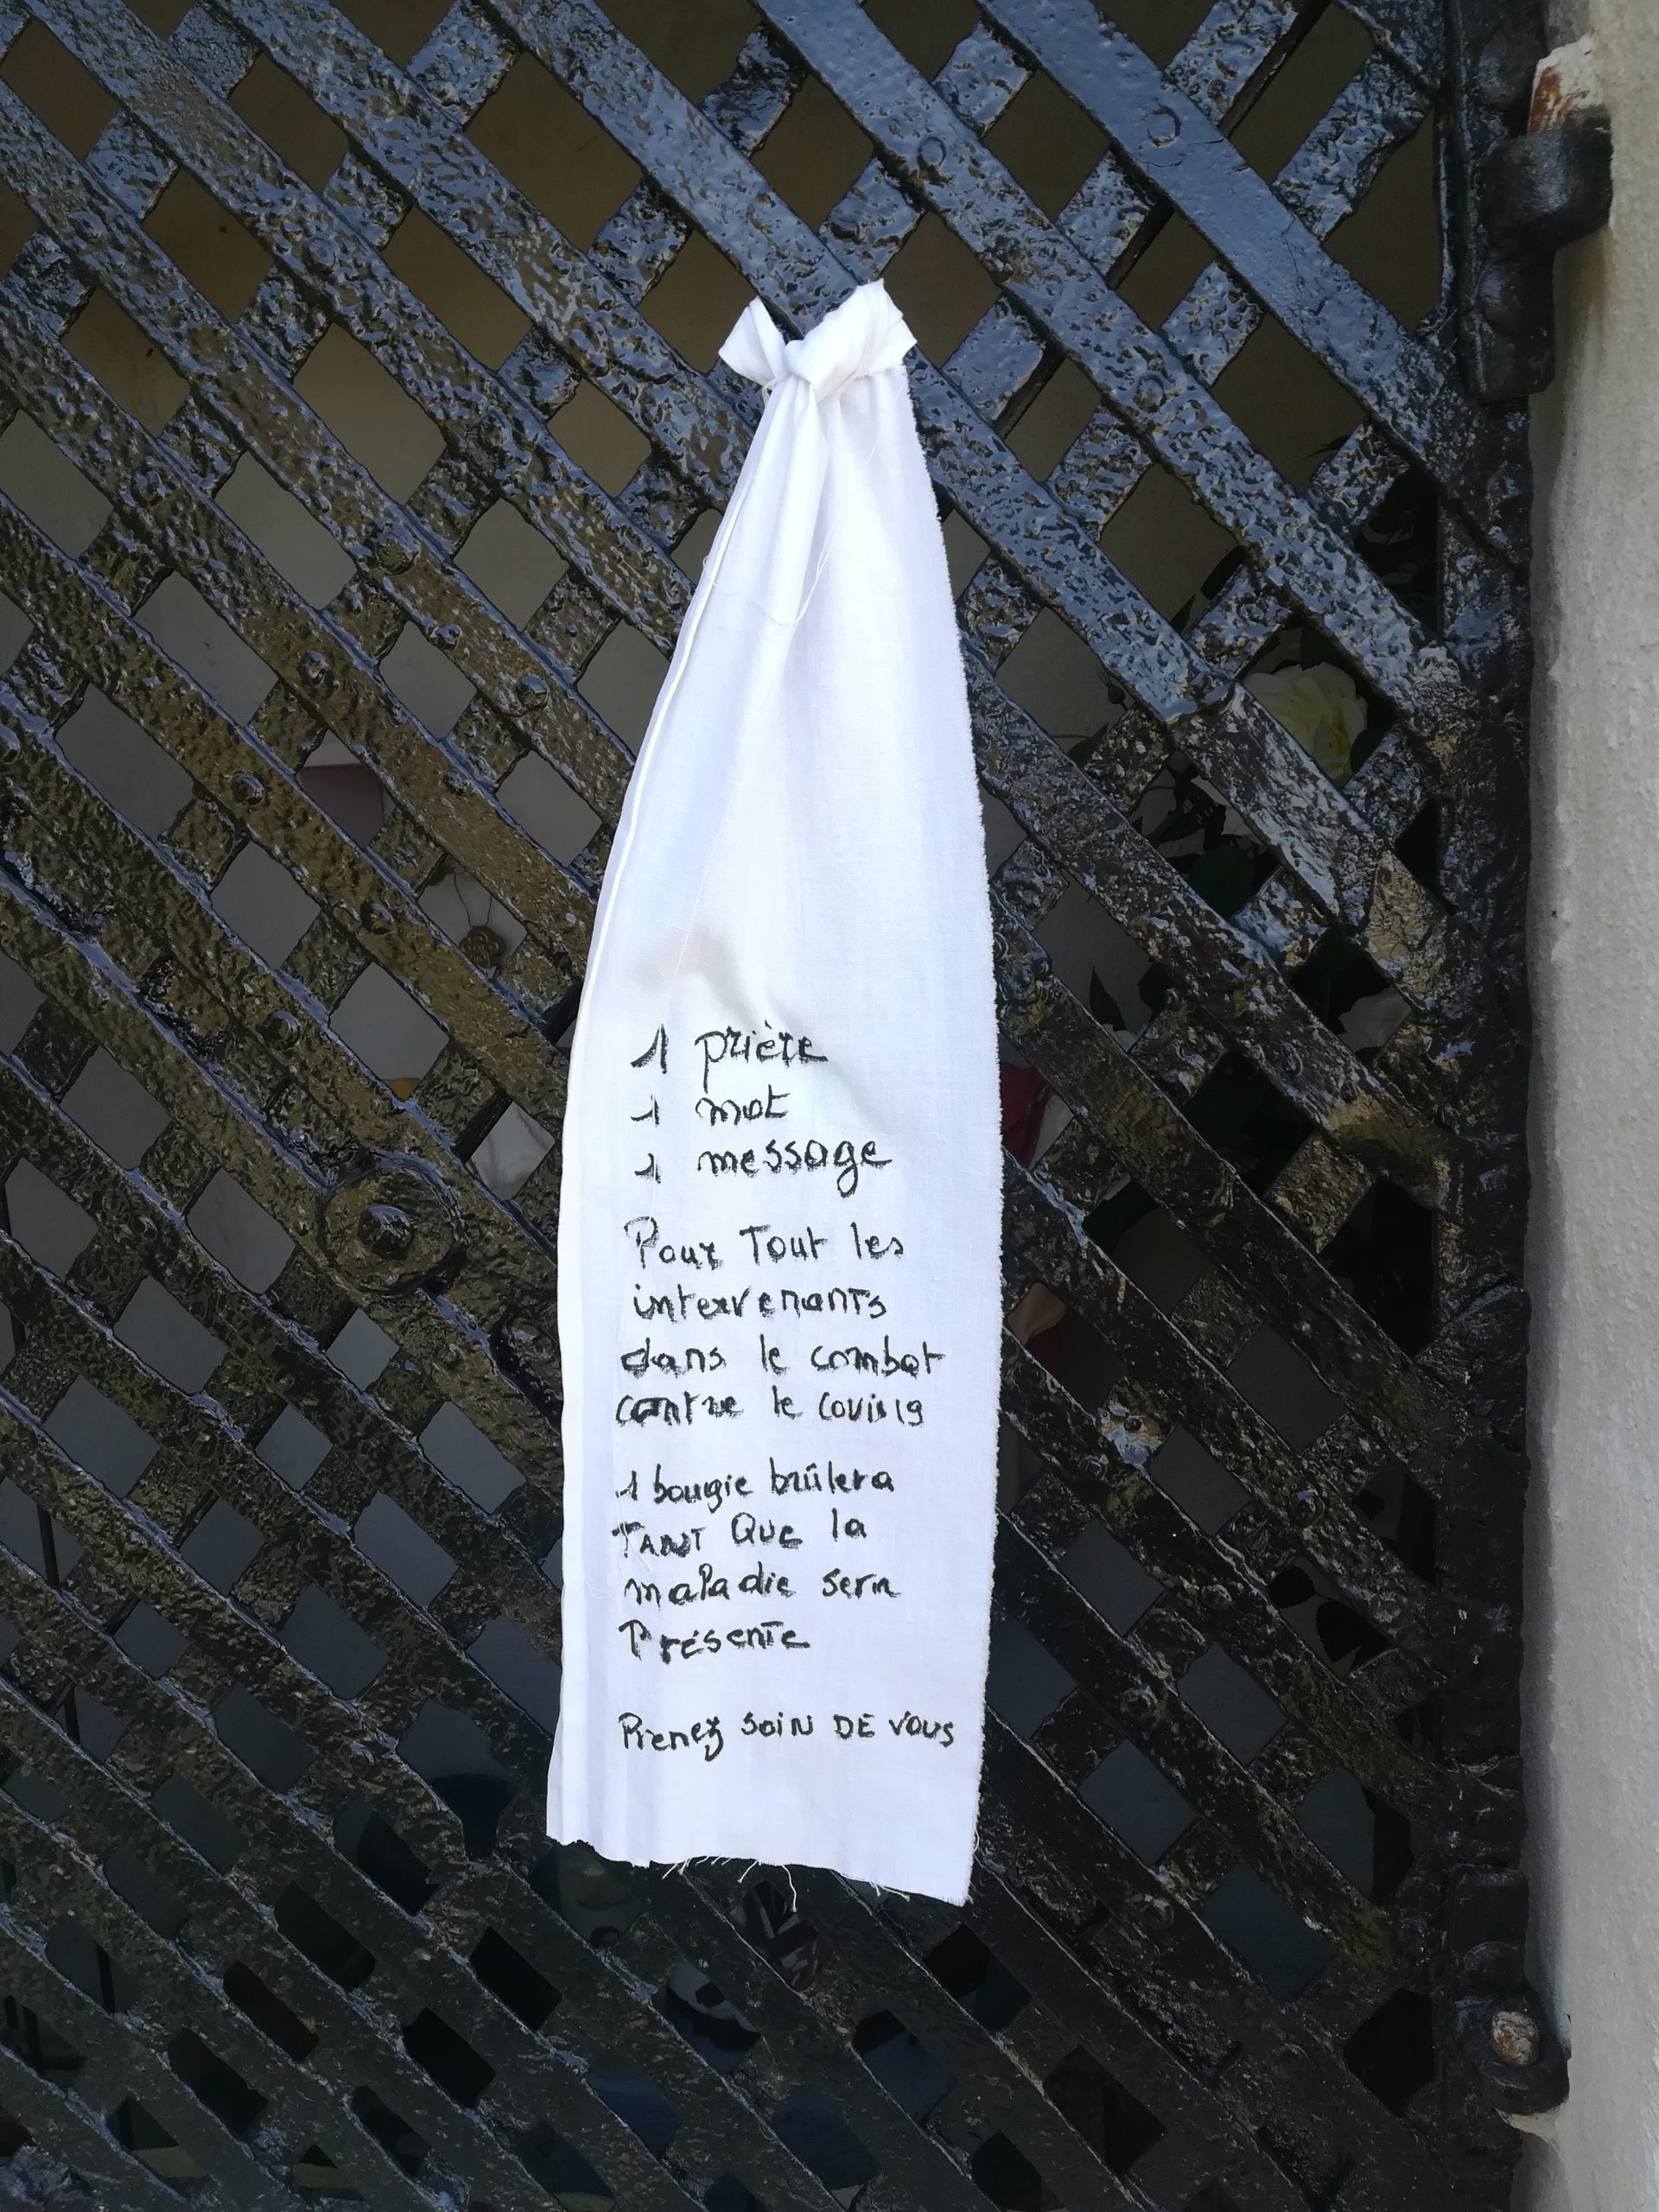 1 prière
1 mot
1 message
Pour Tout les
intervenants
dans le combat
contre le covid19
1 bougie brûlera
TANT QUE la
maladie sera
Présente
Prenez SOIN DE VOUS